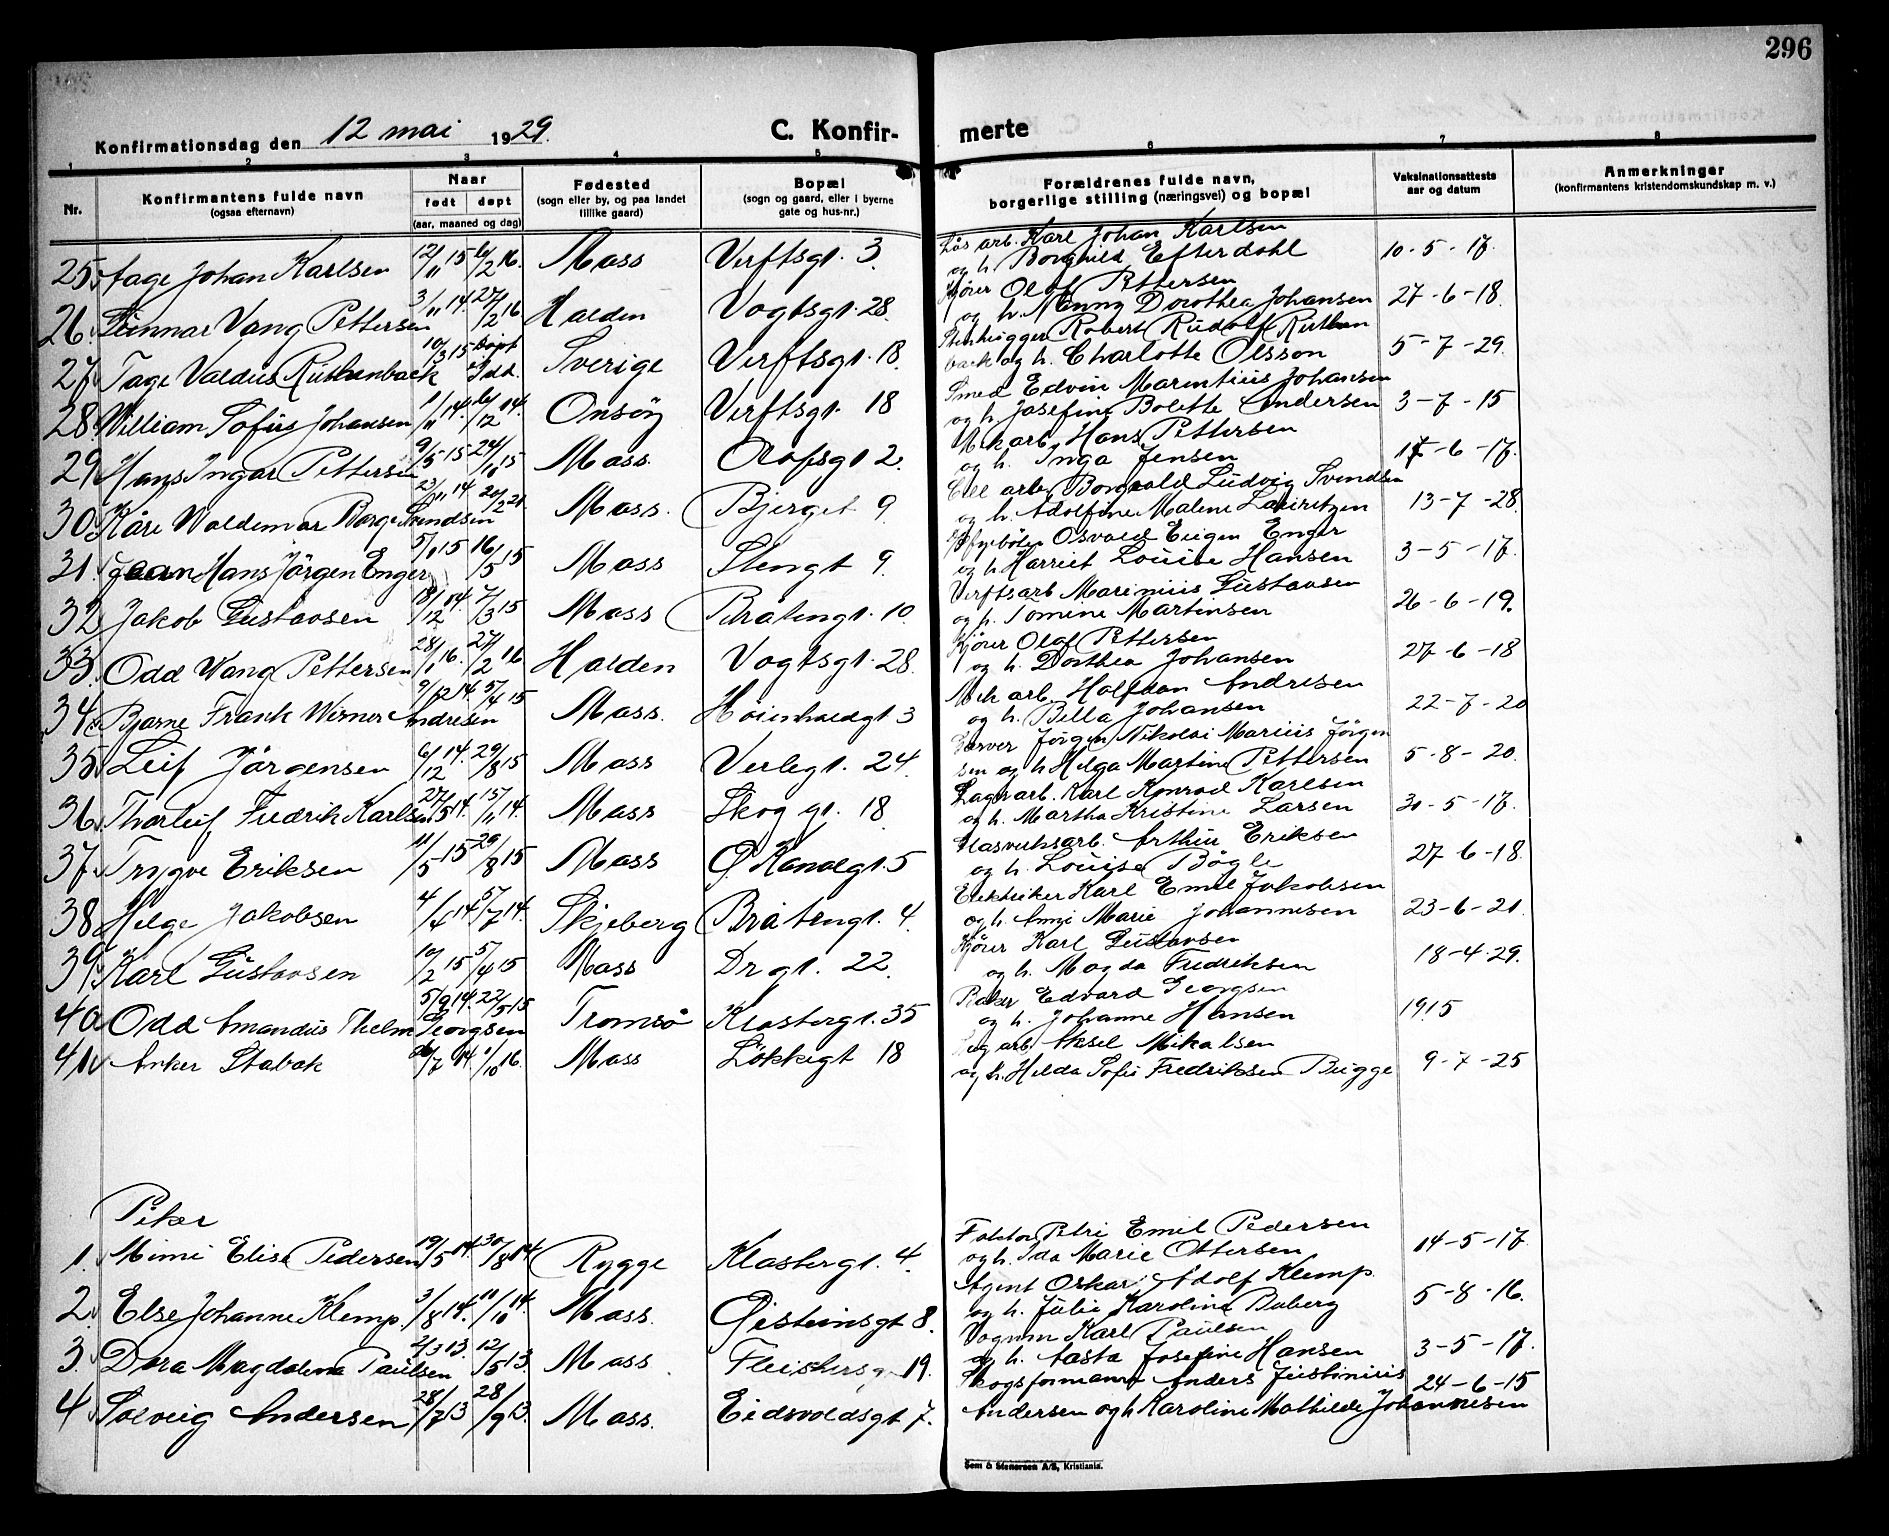 296
Konfirmationsdag den 12 mai 1929.
C. Konfirmerte
1 2 3 4 5 6 7 8
Nr.
Konfirmantens fulde navn (ogsaa efternavn)
Naar født døpt (aar, maaned og dag)
Fødested (sogn eller by, og paa landet tillike gaard)
Bopæl (sogn og gaard, eller i byerne gate og hus-nr.)
Forældrenes fulde navn, borgerlige stilling (næringsvei) og bopæl
Vaksinationsattests aar og datum
Anmerkninger (konfirmantens kristendomskundskap m. v.)
25 Aage Johan Karlsen 12/11 15 6/2 16. Moss Verftsgt. 3. arb. Karl Johan Karlsen og h. Borghild Efterdahl 10-5-17.
26. Gunnar Vang Pettersen 3/11 14. 27/2 16 Halden Vogtsgt. 28. Kjører Olaf Pettersen og h. Nanny Dorothea Johansen 27-6-18.
27 Tage Valdus Ruthenback 10/3 15 Døpt i Idd. Sverige Verftsgt. 18. Stenhugger Robert Rudolf Ruthenback og h. Charlotte Olsson 5-7-29.
28 William Sofus Johansen 1/11 14. 6/12 14. Onsøy Verftsgt. 18 Smed Edvin Marentius Johansen og h. Josefine Bolette Andersen 3-7-15
29 Hans Ingar Pettersen 9/5 15 24/10 15 Moss. Olafsgt 2. Mek arb. Hans Pettersen og h. Inga Jensen -6-17.
30 Kåre Waldemar Borge Svendsen 23/11 14 20/2 21. Moss. Bjerget 9 Cell arb. Borgvald Ludvig Svendsen og h. Adolfine Malene Lauritzen 13-7-28.
31. Jean Hans Jørgen Enger 5/1 15 16/5 15 Moss Stengt 9. Osvald Eugen Enger og h Harriet Louise Hansen 3-5-17.
32 Jakob Gustavsen 18/12 14. 7/3 15 Moss Bråtengt. 10. Verftsarb Marinius Gustavsen og h. Tomine Martinsen 26-6-19.
33. Odd Wang Pettersen 28/1 16. 27/2 16 Halden Vogtsgt. 28. Kjører Olaf Pettersen og h. Dorthea Johansen 27-6-18
34 Bjarne Frank Werner Andresen 9/12 14. 5/4 15 Moss. Høienhaldgt 3 Mek arb. Halfdan Andresen og h. Bella Johansen 22-7-20
35 Leif Jörgensen 6/12 14. 29/8 15 Moss Verlegt. 24. Garver Jörgen Nikolai Marius Jörgensen og h Helga Martine Pettersen 5-8-20.
36 Thorleif Fredrik Karlsen 27/5 14. 15/11 14. Moss Skoggt. 18. Lagerarb. Karl Konrad Karlsen og h. Martha Kristine Larsen 30-5-17.
37 Trygve Eriksen 11/5 15 29/8 15 Moss Ø. Kanalgt. 5 Glasverksarb. Arthur Eriksen og h. Louise Bögle 27-6-18.
38 Helge Jakobsen 4/6 14 5/7 14. Skjeberg Bråtengt. 4. Elektriker Karl Emil Jakobsen og h. Marie Johannesen 23-6-21.
39 Karl Gustavsen 10/2 15 5/4 15 Moss Drgt. 22. Kjører Karl Gustavsen og h. Magda Fredriksen 18-4-29.
40 Odd Amandus Thelm Georgsen 5/9 14. 22/5 15 Tromsø Klostergt. 35 Edvard Georgsen og h. Johanne Hansen 1915
41 Anker Stabak 26/7 14 1/10 16. Moss Løkkegt 18 arb. Aksel Mikalsen og h. Hilda Sofie Fredriksen Bugge 9-7-25
Piker
1. Mimi Elise Pedersen 19/5 14. 30/8 14. Rygge Klostergt. 4. Faktor Petri Emil Pedersen og h. Ida Marie Ottersen 14-5-17.
2. Else Johanne Klemp. 3/8 14. 11/10 14. Moss. Øisteinsgt 8. Agent Oskar Adolf Klemp. og h. Julie Karoline Boberg 5-8-16.
3. Dora Magdalena Paulsen 2/3 13. 12/5 13. Moss. 19. Vognm Karl Paulsen og h. Aasta Josefine Hansen 3-5-17.
4. Solveig Andersen 28/7 13 28/9 13. Moss. Eidsvoldsgt 7. Skogsformann Anders Justinius Andersen og h Karoline Mathilde Johannesen 24-6-15
Sem & Stenersen A/S, Kristiania.